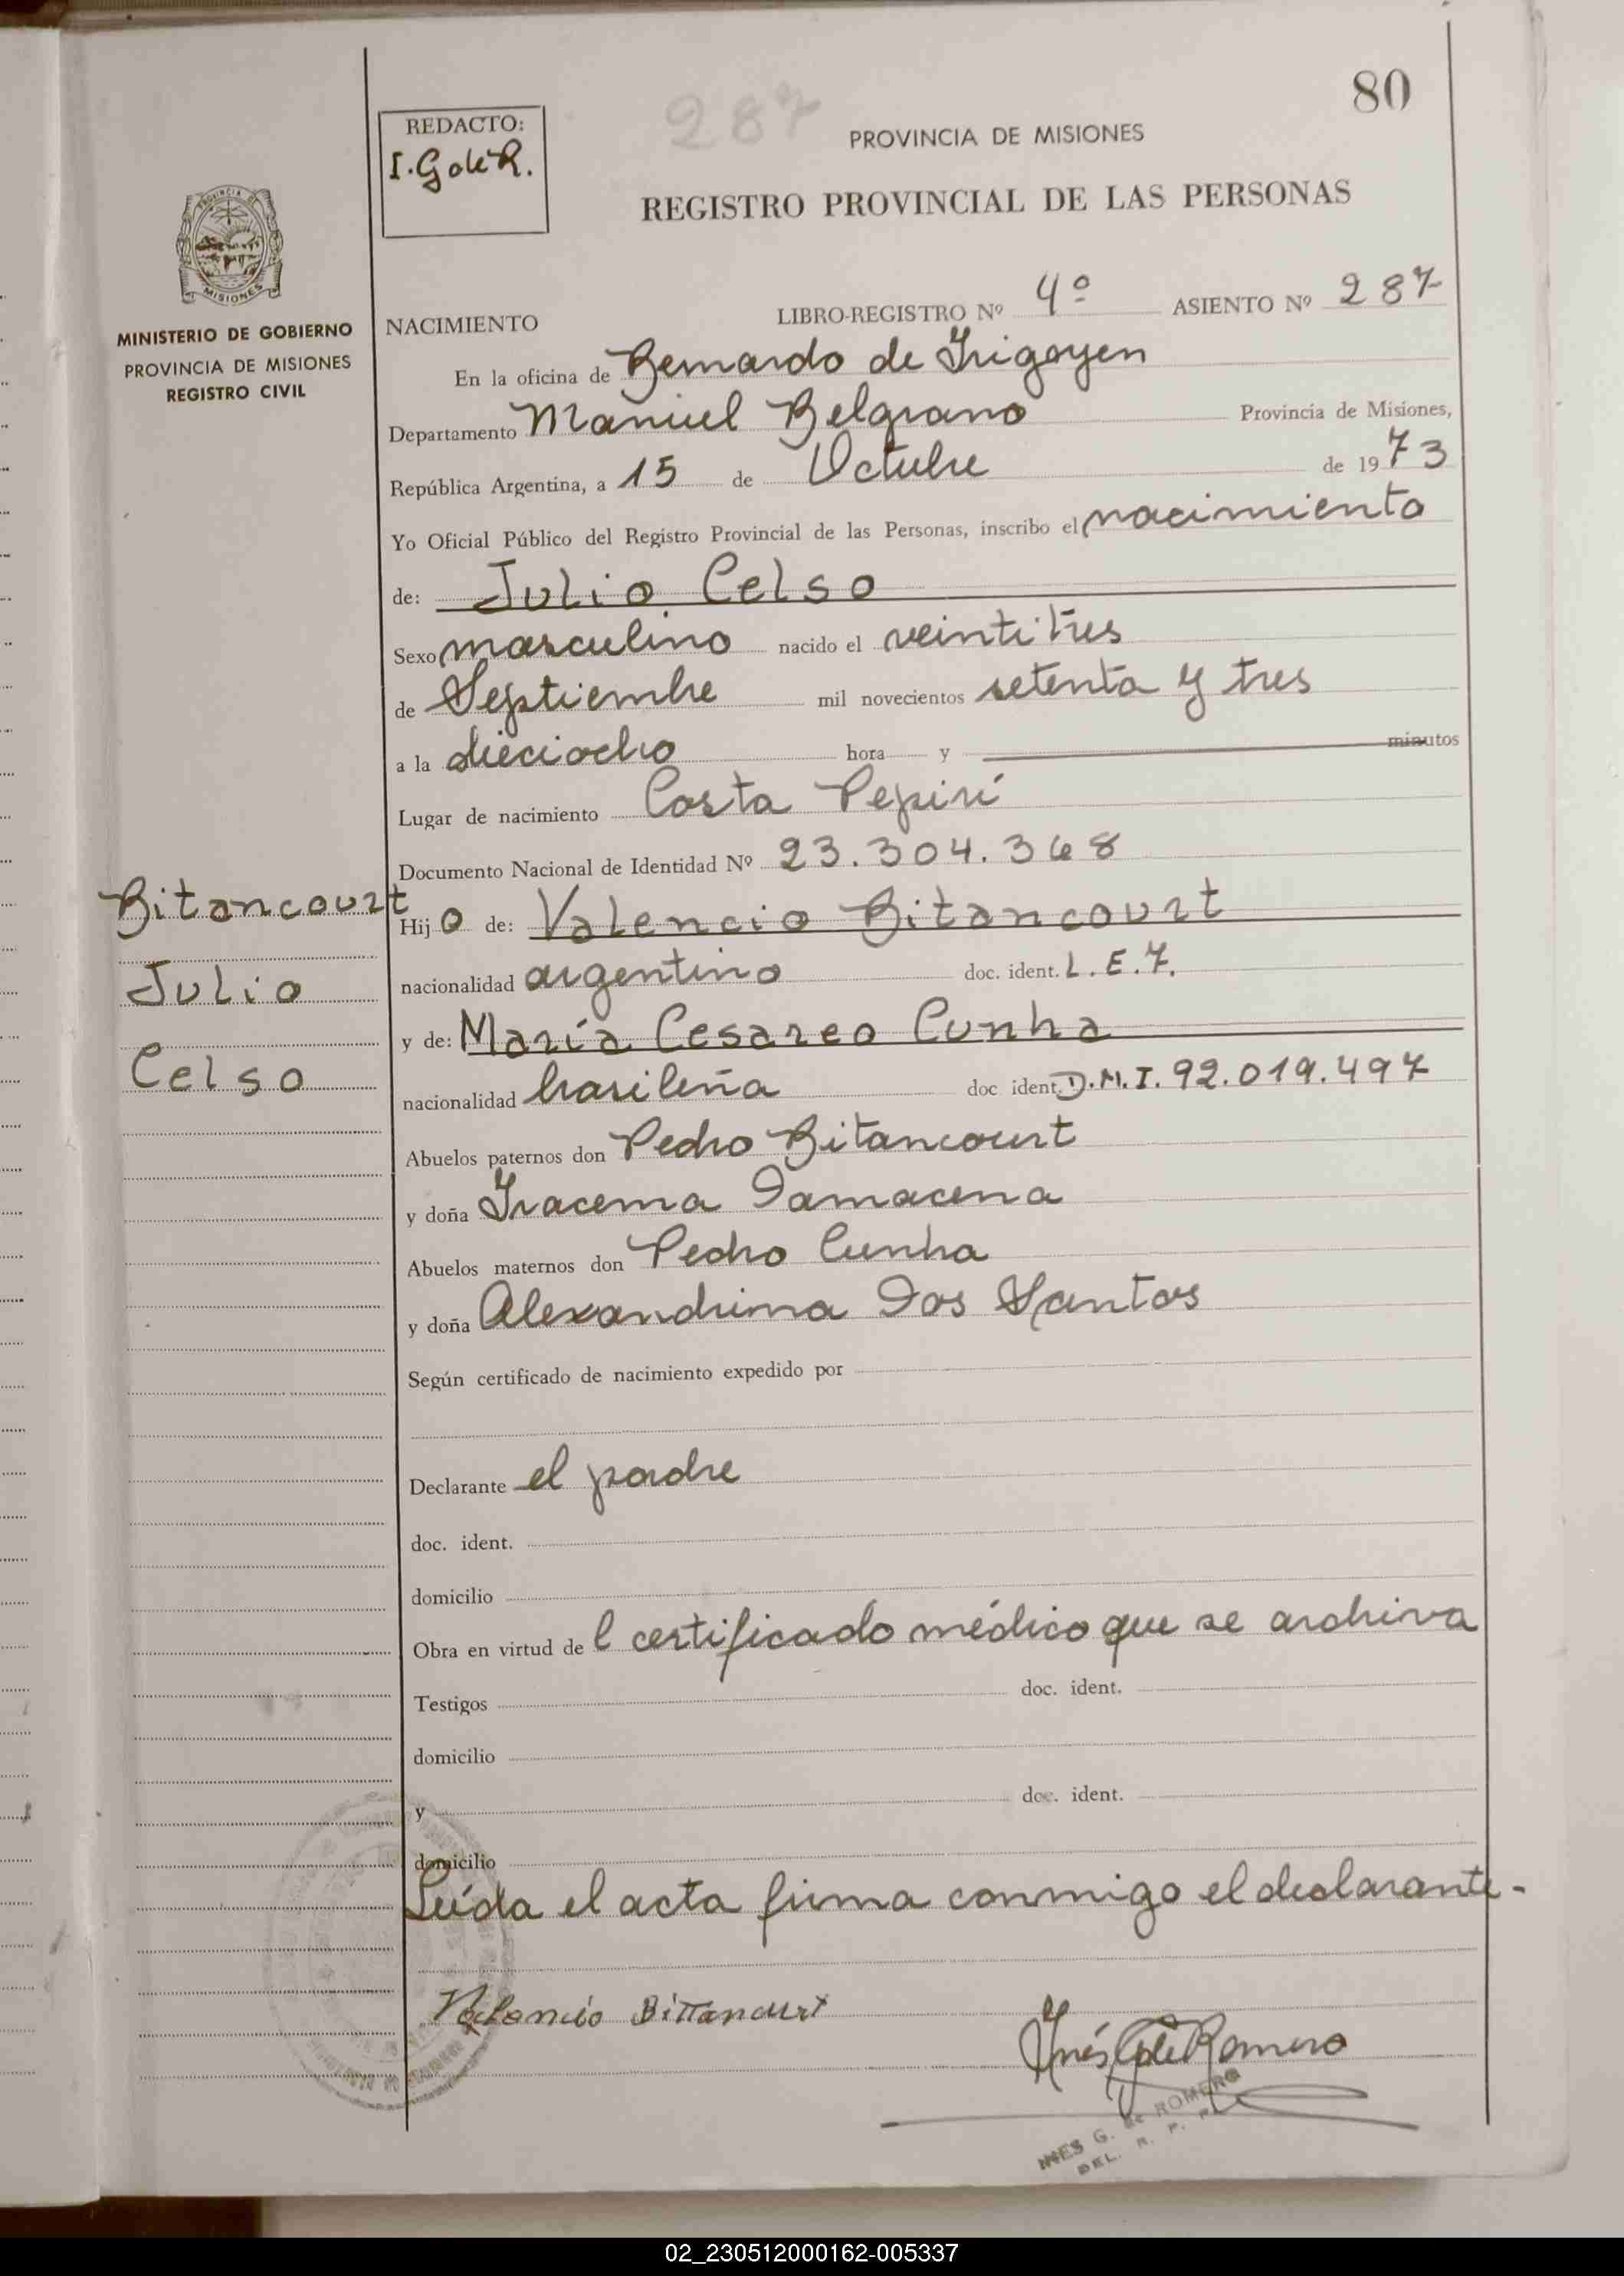 80
287
REDACTO:
I. G de R.
PROVINCIA DE MISIONES
REGISTRO PROVINCIAL DE LAS PERSONAS
MISIONES
MINISTERIO DE GOBIERNO
PROVINCIA DE MISIONES
REGISTRO CIVIL
NACIMIENTO LIBRO-REGISTRO Nº 4º ASIENTO Nº 287
En la oficina de Bernardo de Irigoyen
Departamento Manuel Belgrano Provincia de Misiones,
República Argentina, a 15 de Octubre de 1973
Yo Oficial Público del Registro Provincial de las Personas, inscribo el nacimiento
de: Julio Celso
Sexo masculino nacido el veintitres
de Septiembre mil novecientos setenta y tres
a la dieciocho hora y minutos
Lugar de nacimiento Costa Pepirí
Documento Nacional de Identidad Nº 23.304.368
Bitancourt
Julio
Celso
Hijo de: Valencio Bitancourt
nacionalidad argentino doc. ident. L.E.7.
y de: María Cesareo Cunha
nacionalidad brasileña doc ident. D.M.I. 92.019.497
Abuelos paternos don Pedro Bitancourt
y doña Iracema Damacena
Abuelos maternos don Pedro Cunha
y doña Alexandrina Dos Santos
Según certificado de nacimiento expedido por
Declarante el padre
doc. ident.
domicilio
Obra en virtud del certificado médico que se archiva
Testigos doc. ident.
domicilio
y doc. ident.
domicilio
Leída el acta firma conmigo el declarante-
Valencio Bittancurt
Inés G de Romero
INES G. de ROMERO
DEL. R. P. P.
02_230512000162-005337